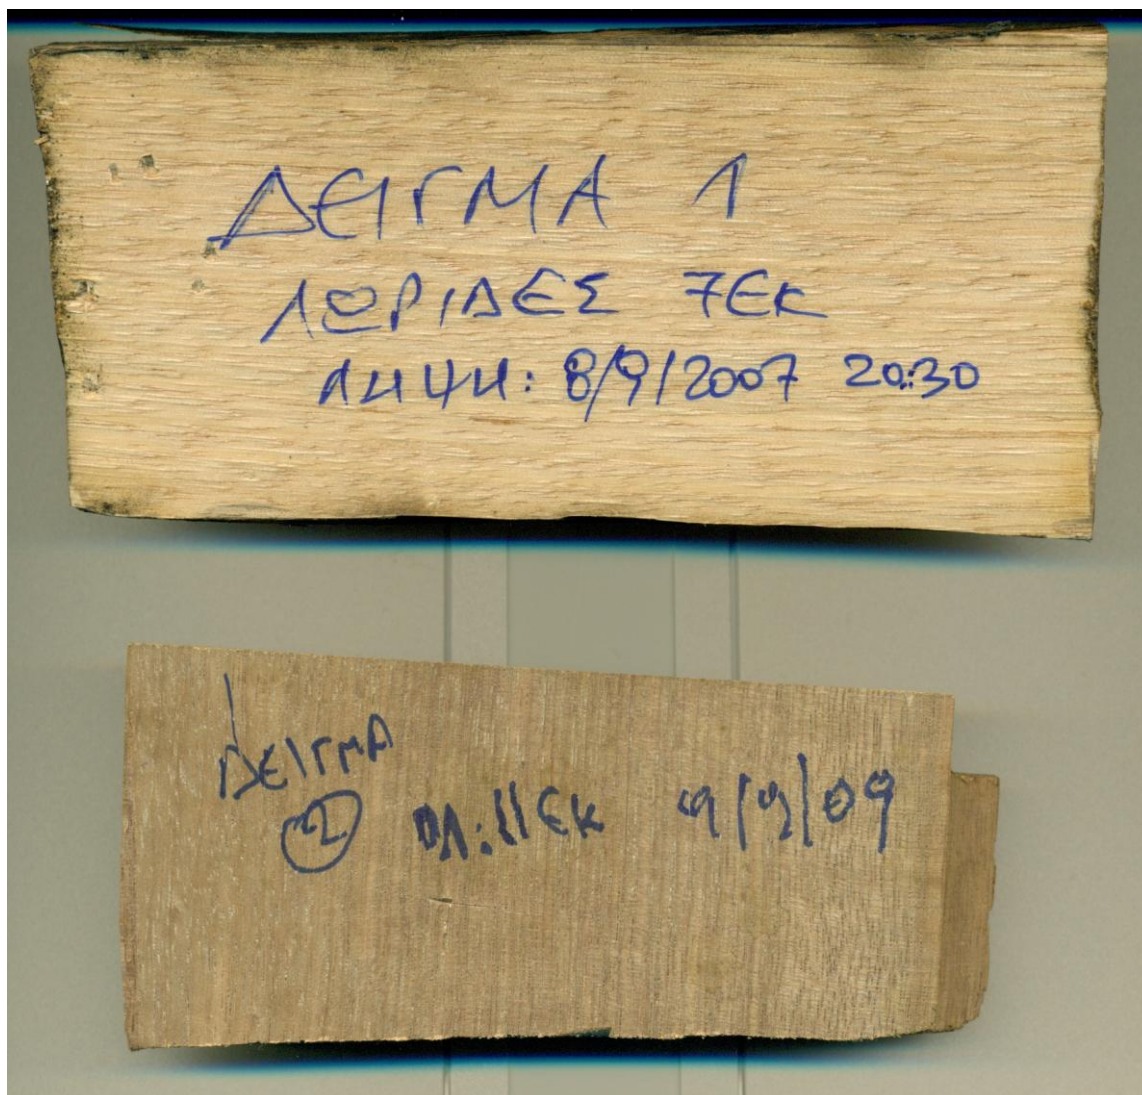 ΔΕΙΓΜΑ 1
ΛΩΡΙΔΕΣ 7ΕΚ
ΛΗΨΗ: 8/9/2007 20:30
ΔΕΙΓΜΑ
2 ΠΛ:11ΕΚ 9/9/09